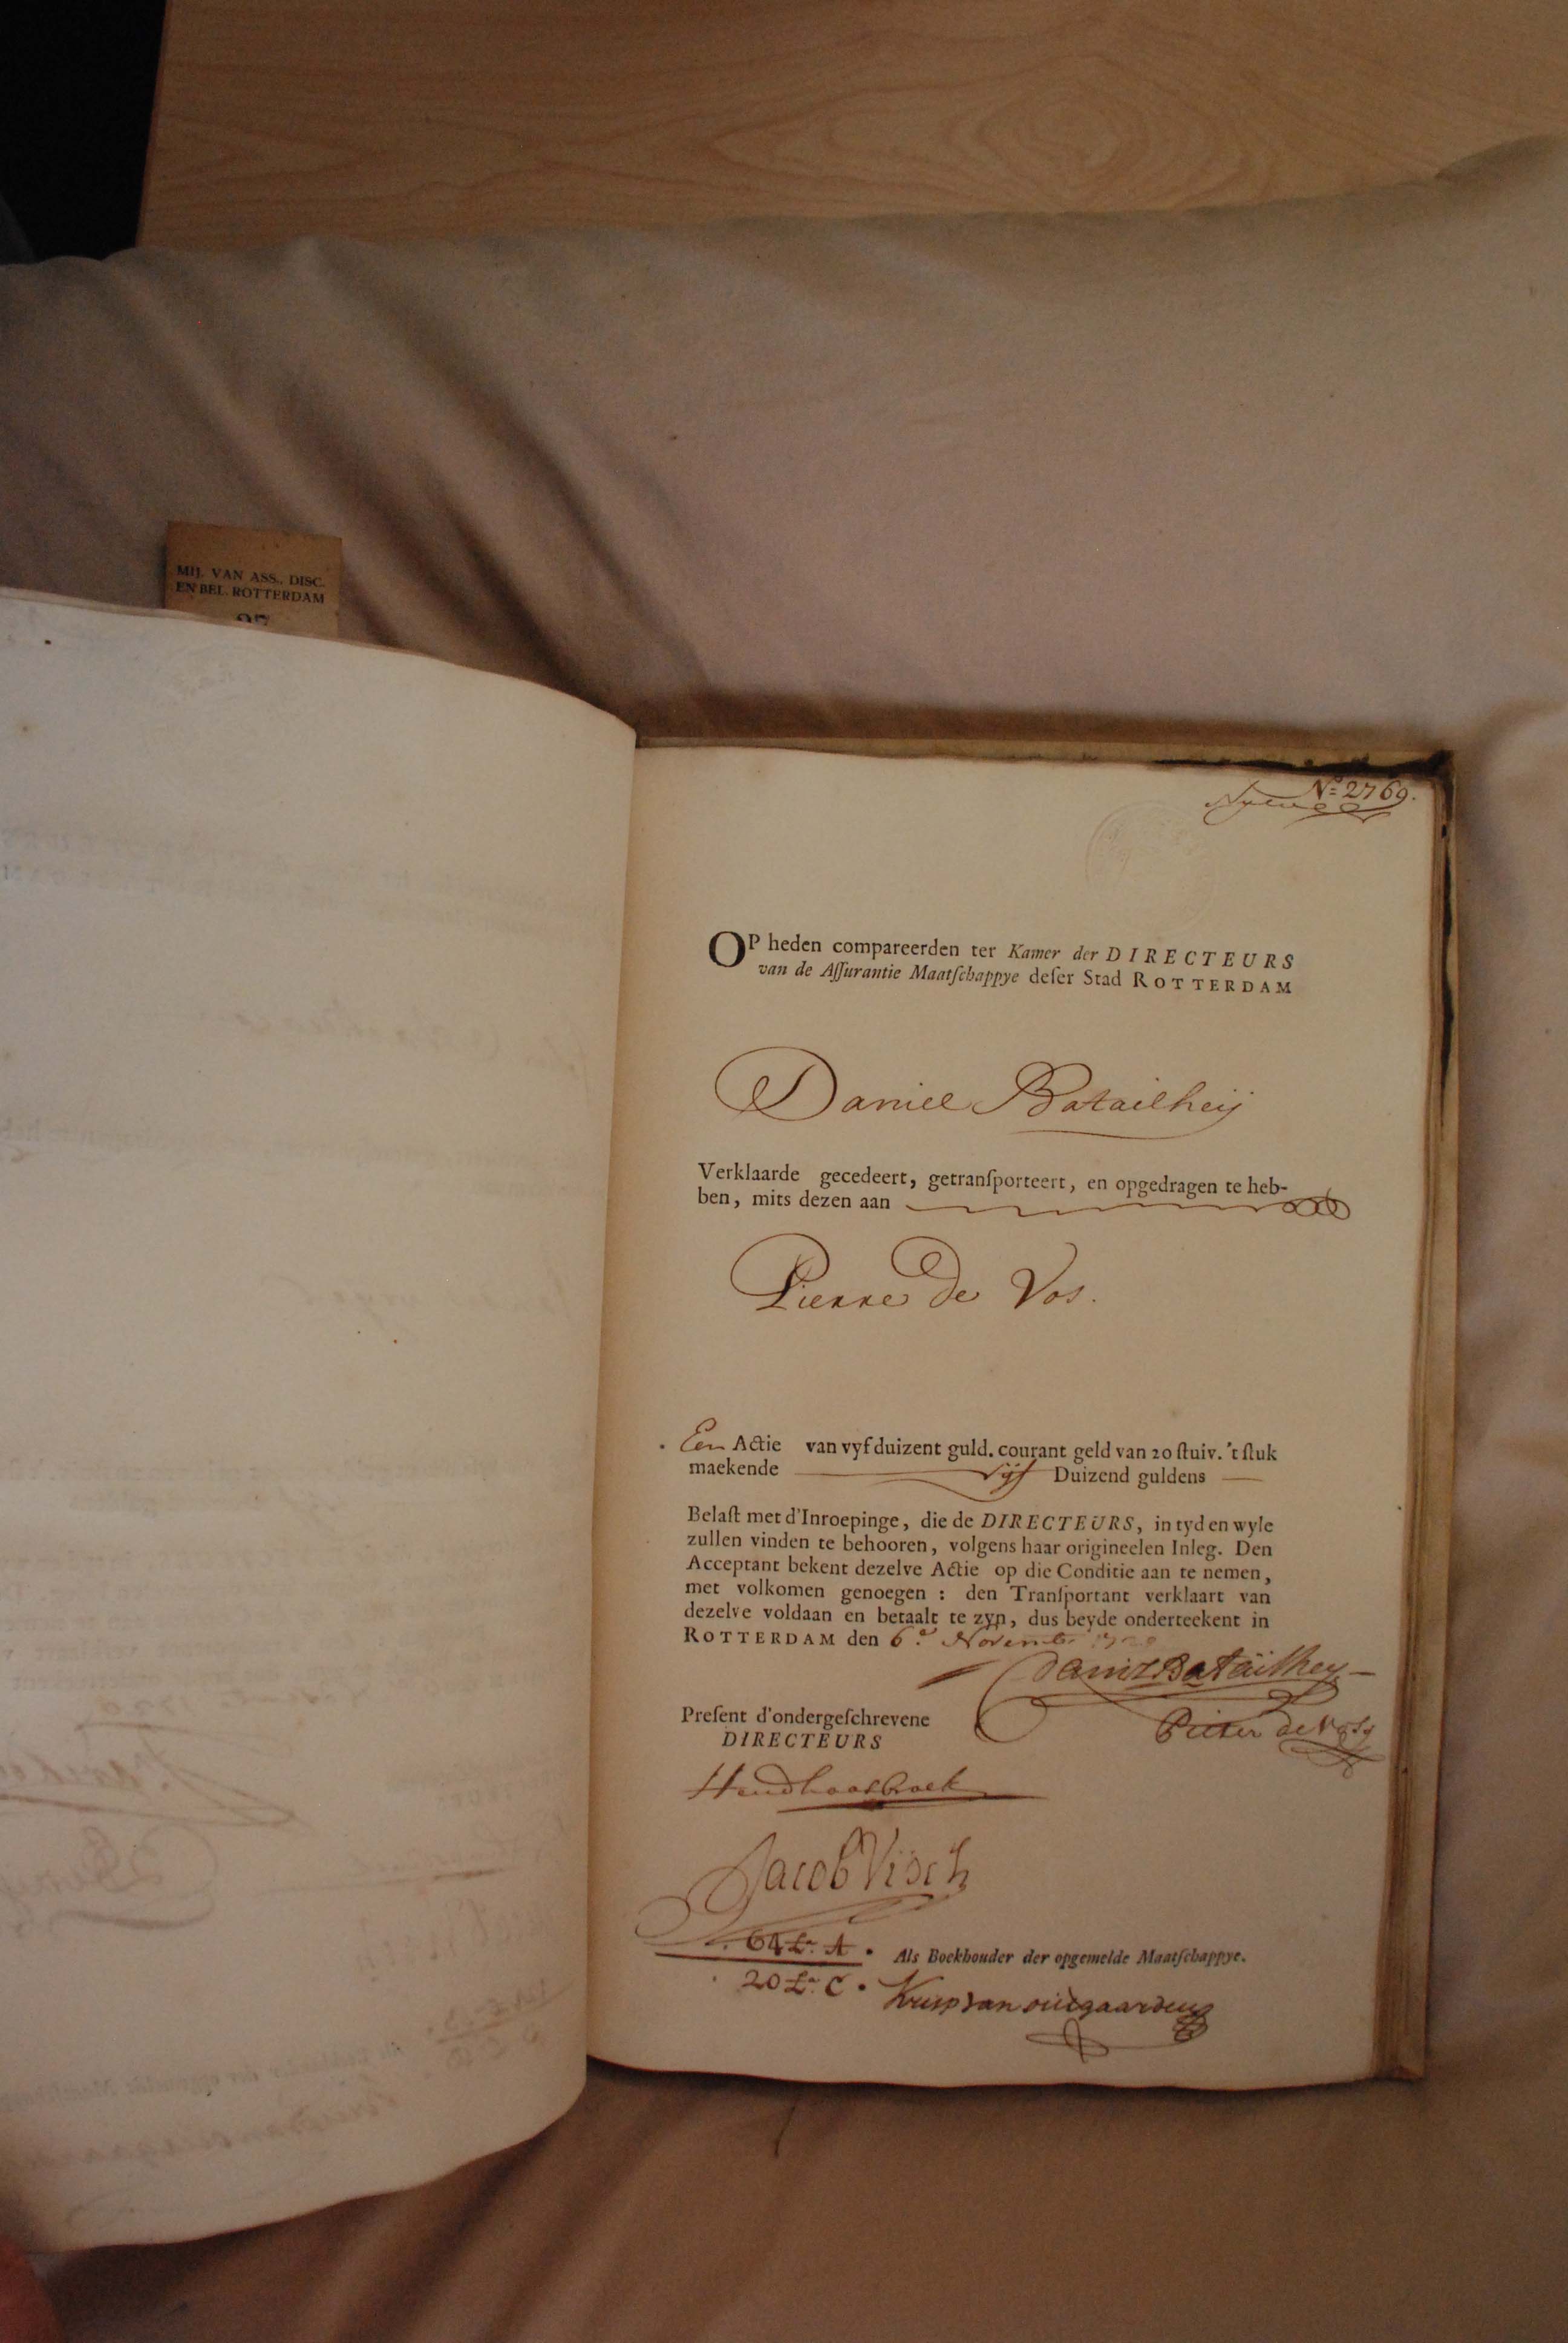 MIJ. VAN ASS., DISC.
EN BEL. ROTTERDAM
N:º 2769.
OP heden compareerden ter Kamer der DIRECTEURS
van de Aſſurantie Maatſchappye deſer Stad ROTTERDAM
Daniel Batailheij
Verklaarde gecedeert, getranſporteert, en opgedragen te heb-
ben, mits dezen aan
Pierre De Vos.
Een Actie van vyf duizent guld. courant geld van 20 ſtuiv. 't ſtuk
maekende Vijf Duizend guldens
Belaſt met d'Inroepinge, die de DIRECTEURS, in tyd en wyle
zullen vinden te behooren, volgens haar origineelen Inleg. Den
Acceptant bekent dezelve Actie op die Conditie aan te nemen,
met volkomen genoegen : den Tranſportant verklaart van
dezelve voldaan en betaalt te zyn, dus beyde onderteekent in
ROTTERDAM den 6.e Novemb. 1720
Daniel Batailhey
Pieter de Vos
Preſent d'ondergeſchrevene
DIRECTEURS
Jacob Visch
64 Lr. A.
Als Boekhouder der opgemelde Maatſchappye.
20 Lr. C.